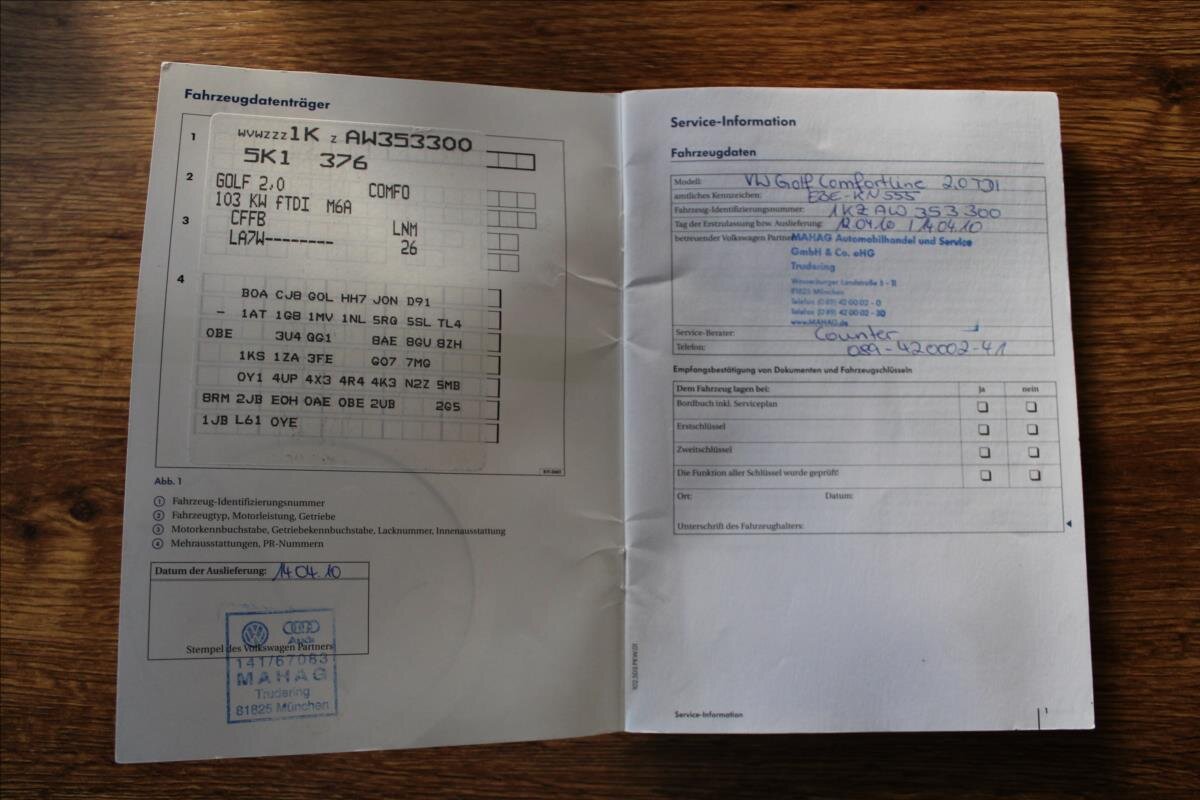 Fahrzeugdatenträger
1
WVWZZZ1K Z AW353300
5K1 376
2
GOLF 2,0 COMFO
103 KW fTDI M6A
3
CFFB LNM
LA7W-------- 26
4
BOA CJ8 GOL HH7 JON D91
– 1AT 1G8 1MV 1NL 5RG 5SL TL4
OBE 3U4 GG1 8AE 8GU 8ZH
1KS 1ZA 3FE GO7 7MG
OY1 4UP 4X3 4R4 4K3 N2Z 5MB
8RM 2JB EOH OAE OBE 2UB 2G5
1JB L61 OYE
Abb. 1
1 Fahrzeug-Identifizierungsnummer
2 Fahrzeugtyp, Motorleistung, Getriebe
3 Motorkennbuchstabe, Getriebekennbuchstabe, Lacknummer, Innenausstattung
4 Mehrausstattungen, PR-Nummern
Datum der Auslieferung: 14.04.10
Stempel des Volkswagen Partners
Audi
141/67083
MAHAG
Trudering
81825 München
Service-Information
Fahrzeugdaten
Modell: VW Golf Comfortline 2.0 TDI
amtliches Kennzeichen: EBE-KN555
Fahrzeug-Identifizierungsnummer: 1KZ AW 353 300
Tag der Erstzulassung bzw. Auslieferung: 12.04.10 / 14.04.10
betreuender Volkswagen Partner: MAHAG Automobilhandel und Service
GmbH & Co. oHG
Trudering
Wasserburger Landstraße 5 - 11
81825 München
Telefon (089) 42 00 02 - 0
Telefax (089) 42 00 02 - 30
www.MAHAG.de
Service-Berater: Counter
Telefon: 089-420002-41
Empfangsbestätigung von Dokumenten und Fahrzeugschlüsseln
Dem Fahrzeug lagen bei: ja nein
Bordbuch inkl. Serviceplan
Erstschlüssel
Zweitschlüssel
Die Funktion aller Schlüssel wurde geprüft!
Ort: Datum:
Unterschrift des Fahrzeughalters:
Service-Information 1